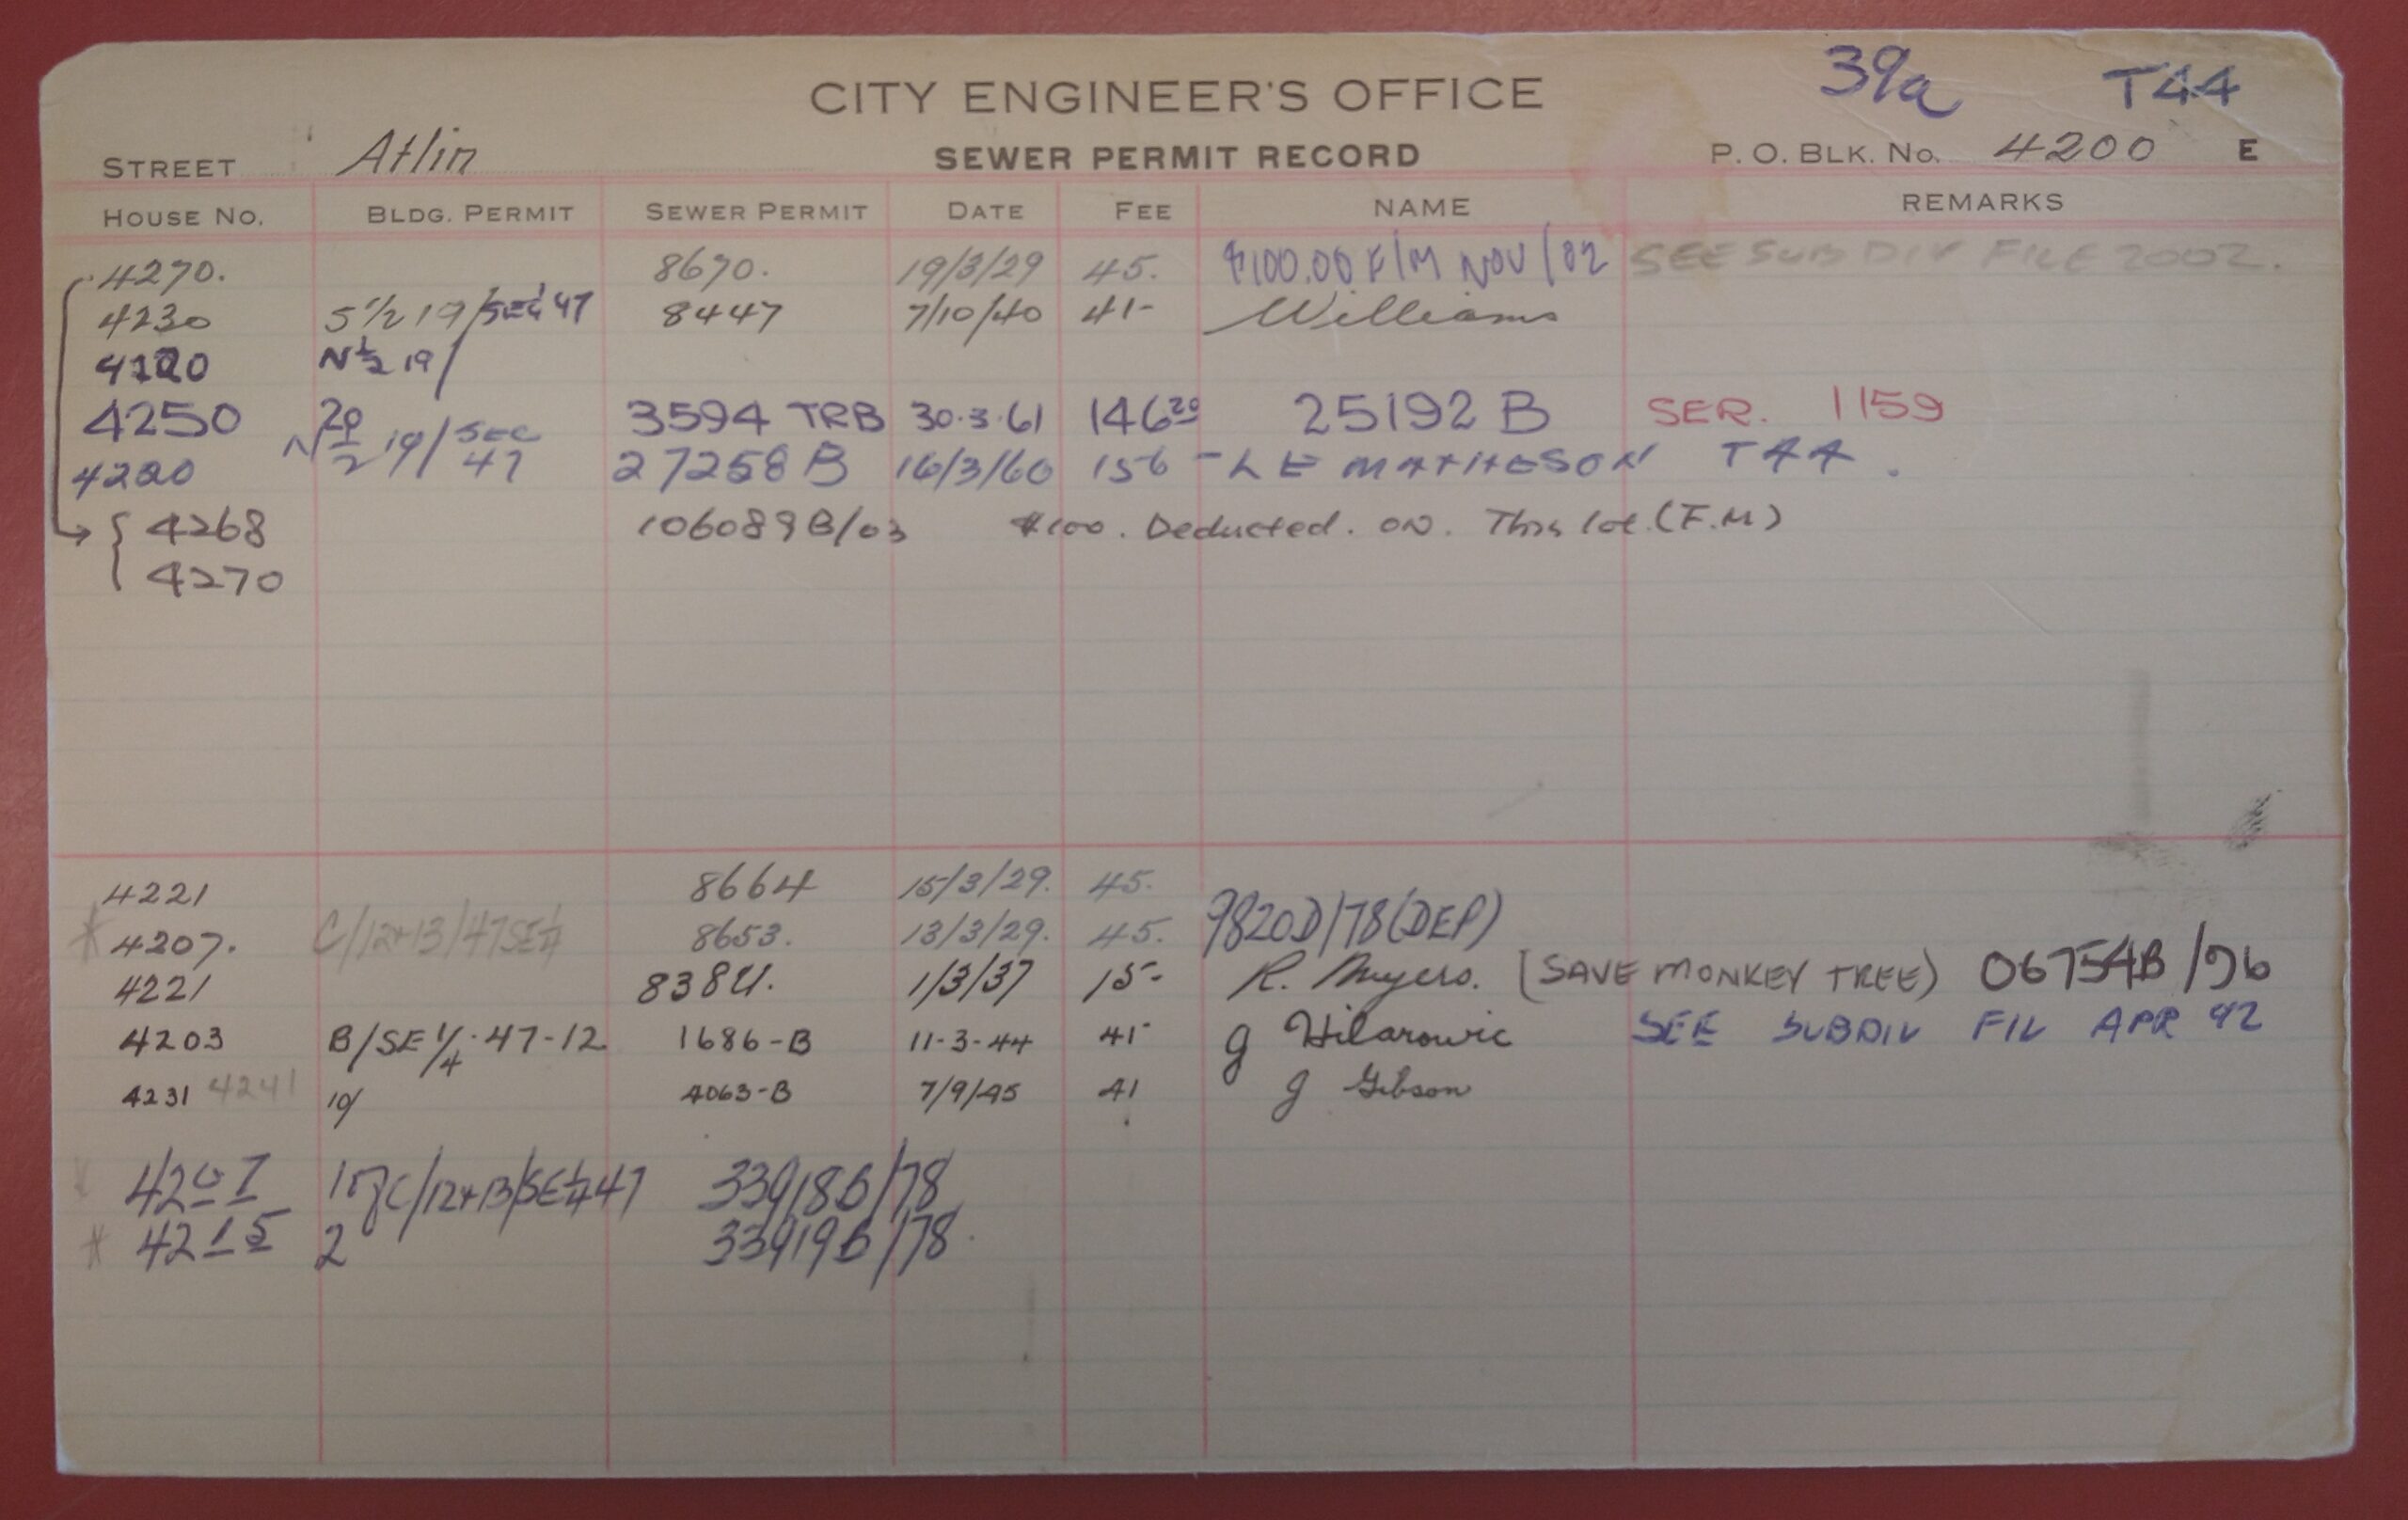 39a T44
CITY ENGINEER'S OFFICE
STREET Atlin SEWER PERMIT RECORD P. O. BLK. No. 4200 E
HOUSE NO. BLDG. PERMIT SEWER PERMIT DATE FEE NAME REMARKS
4270. 8670. 19/3/29 45. $100.00 F/M NOV/02 SEE SUBDIV FILE 2002.
4230 S 1/2 19/SE 1/4 47 8447 7/10/40 41- Williams
N 1/2 19/
4250 20 3594 TRB 30.3.61 146 20 25192 B SER. 1159
4220 N 1/2 19/SEC 47 27258 B 16/3/60 156 - L E MATHESON T44.
4268 106089B/03 $100. Deducted. on. This lot. (F.M)
4270
4221 8664 15/3/29. 45.
* 4207. C/12+13/47SE1/4 8653. 13/3/29. 45. 9820D/78(DEP)
4221 8384. 1/3/37 15- R. Myers. (SAVE MONKEY TREE) 06754B/96
4203 B/SE 1/4 - 47-12 1686-B 11-3-44 41- J Hilarowic SEE SUBDIV FIL APR 92
4231 4241 10/ 4063-B 7/9/45 41 J Gibson
4207 C/12+13/SE1/4 47 33918B/78
* 4215 2 33919B/78.